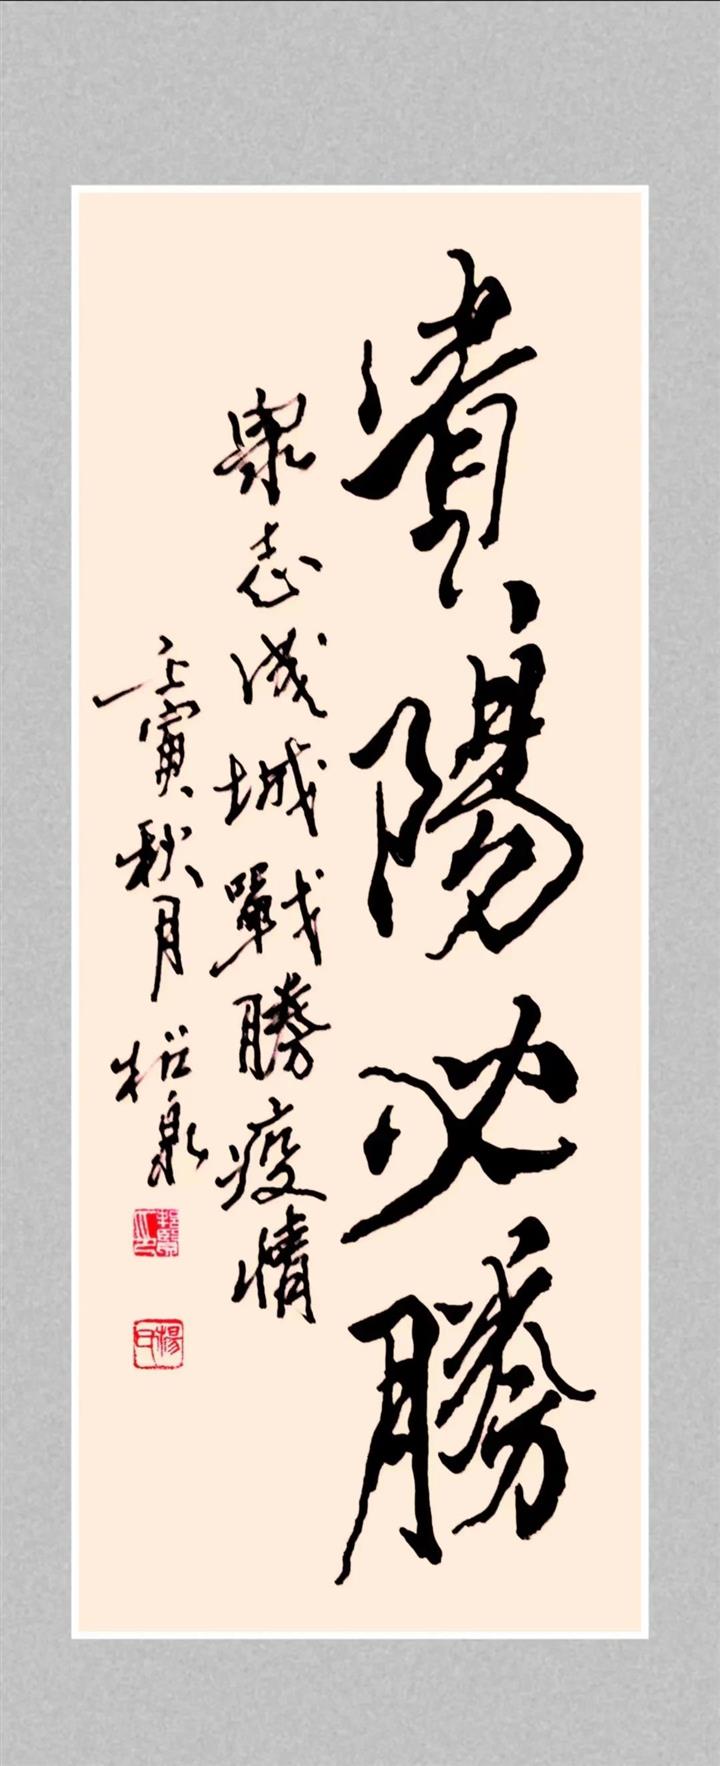 貴陽必勝
衆志成城戰勝疫情
壬寅秋月
楊